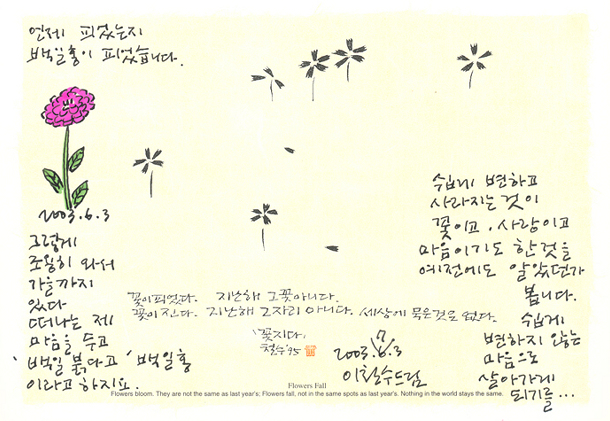 언제 피었는지
백일홍이 피었습니다.
2003.6.3
그렇게
조용히 와서
가을까지
있다
떠나는 제
마음을 두고
'백일 붉다고' 백일홍
이라고 하지요.
쉽게 변하고
사라지는 것이
꽃이고, 사람이고
마음이기도 한 것을
예전에도 알았던가
봅니다.
쉽게
변하지 않는
마음으로
살아가게
되기를...
꽃이 피었다. 지난해 그 꽃 아니다.
꽃이 진다. 지난해 그 자리 아니다. 세상에 묵은 것은 없다.
'꽃지다'
철수 '95
2003.6.3
이철수드림
Flowers Fall
Flowers bloom. They are not the same as last year's; Flowers fall, not in the same spots as last year's. Nothing in the world stays the same.